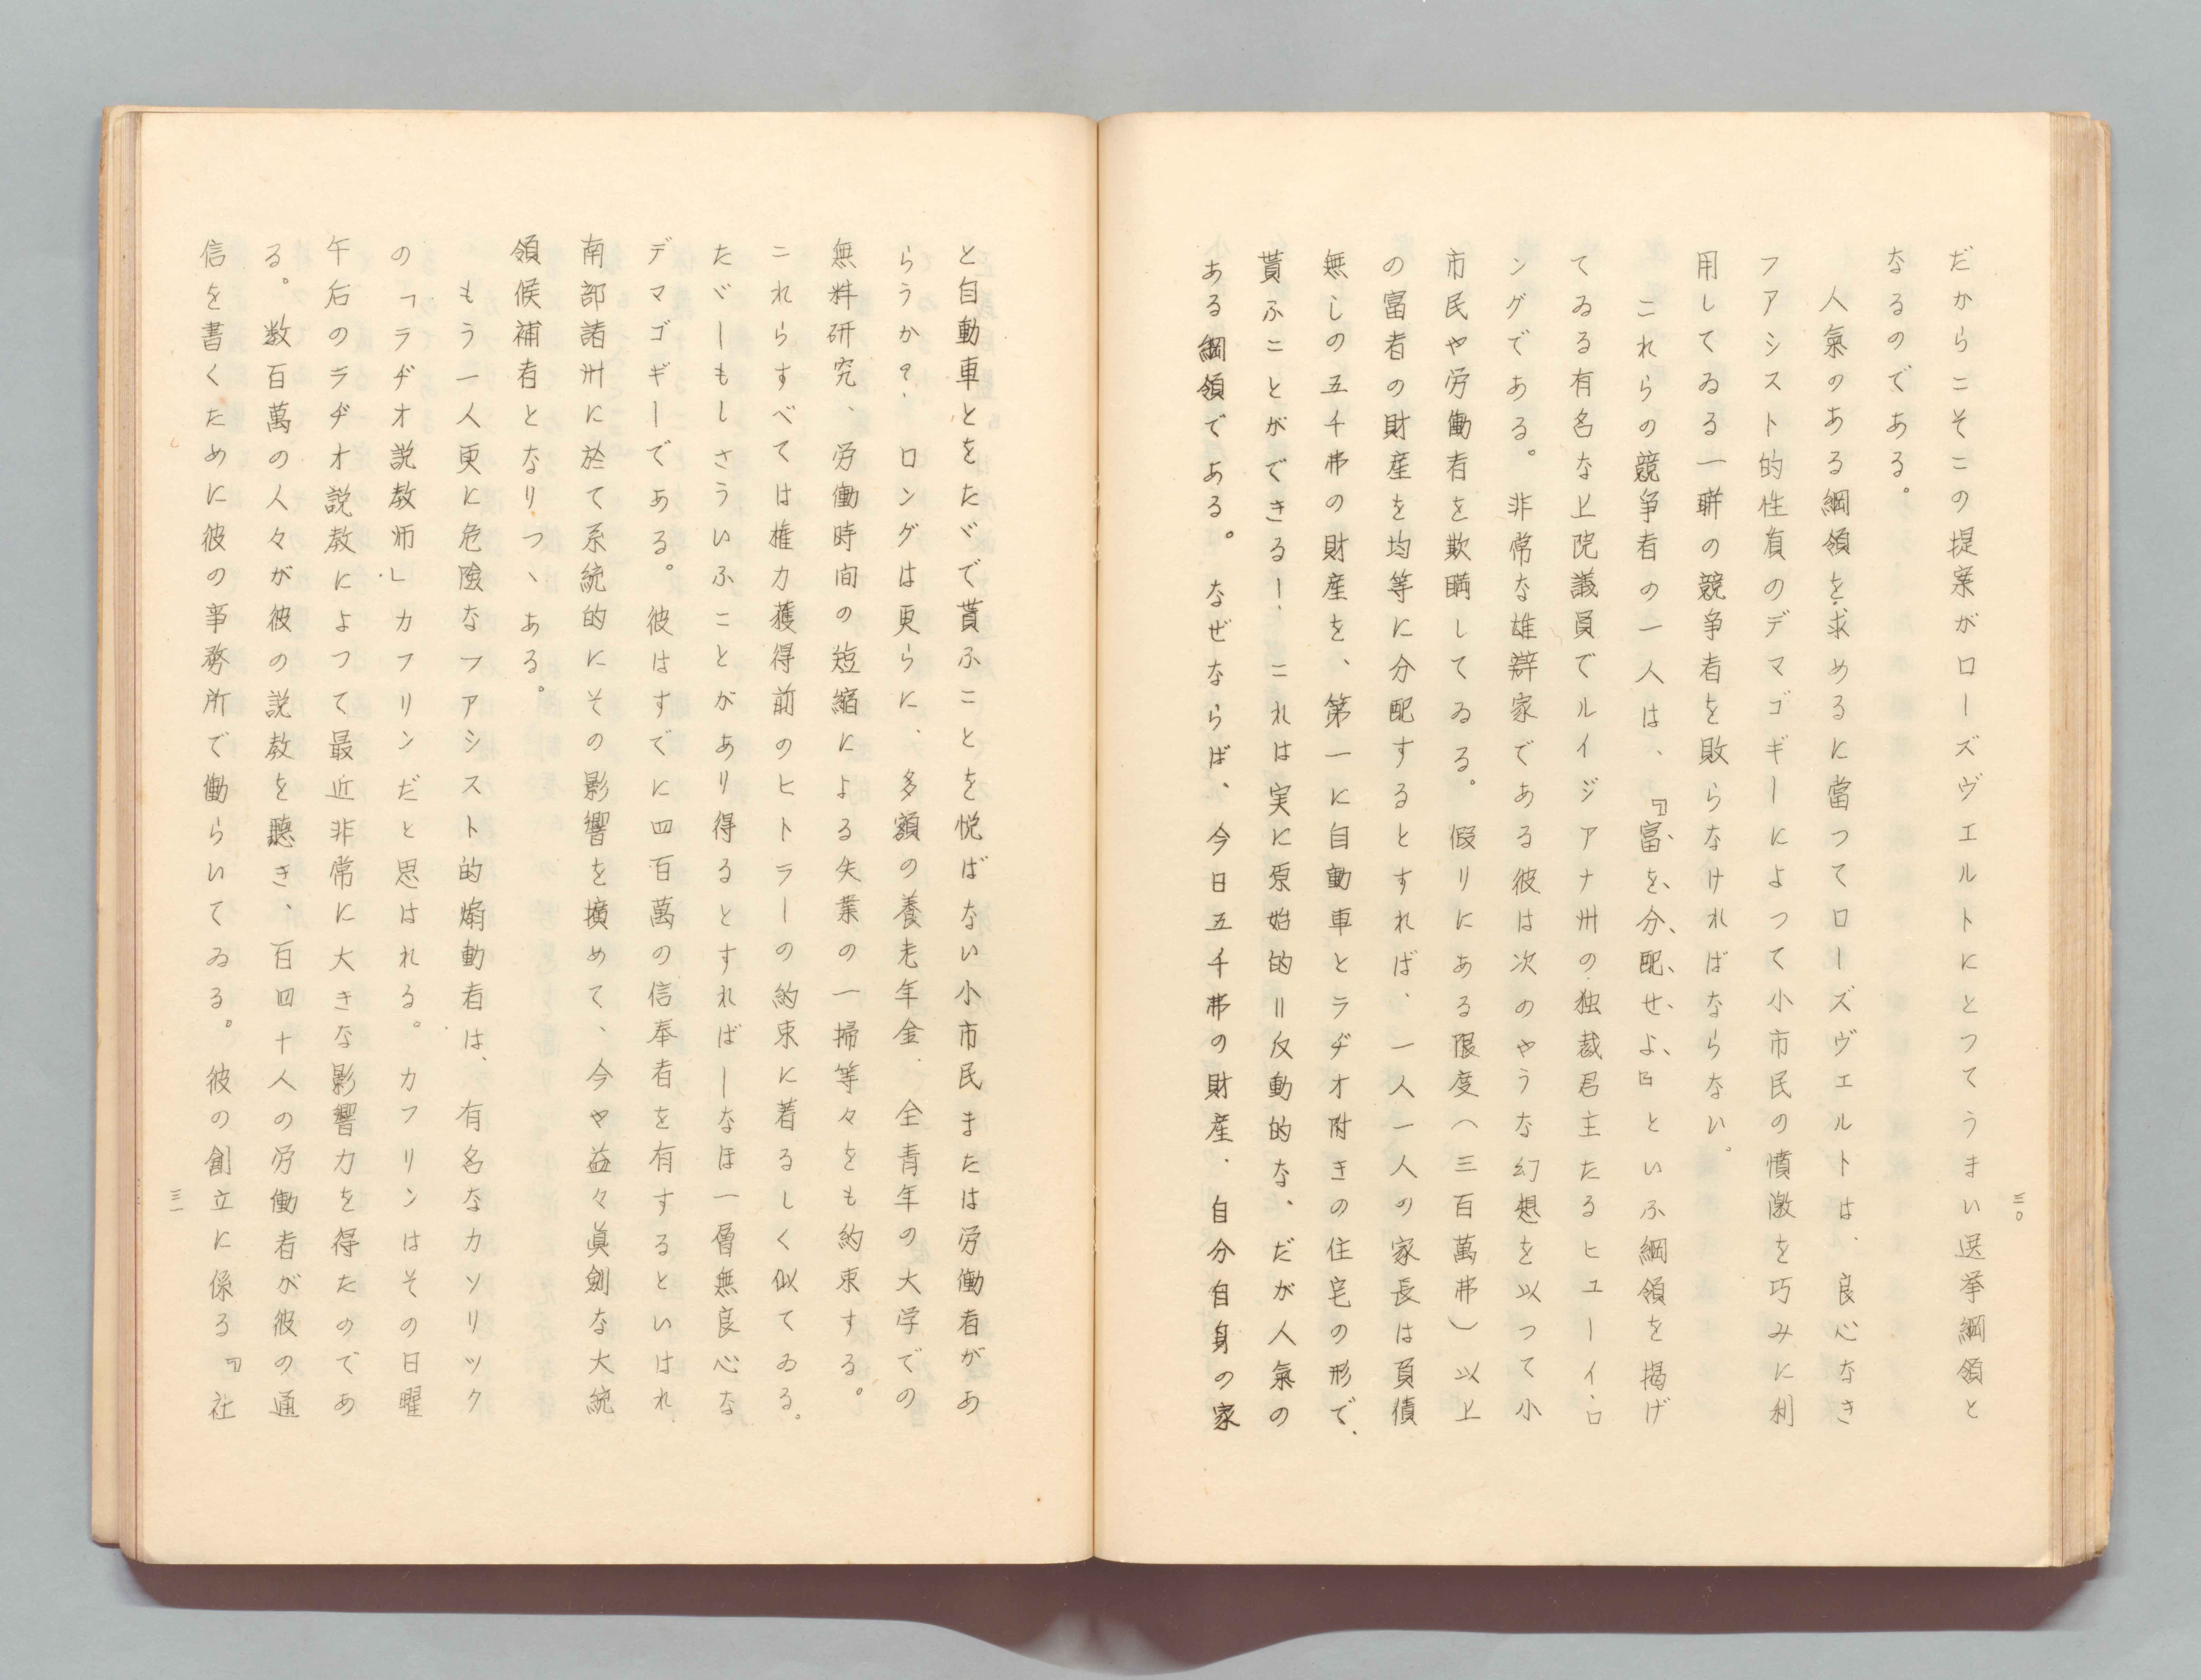 三〇
だからこそこの提案がローズヴェルトにとつてうまい選挙綱領と
なるのである。
人氣のある綱領を求めるに當つてローズヴェルトは、良心なき
フアシスト的性質のデマゴギーによつて小市民の憤激を巧みに利
用してゐる一聯の競争者を敗らなければならない。
これらの競争者の一人は、『富を分配せよ』といふ綱領を揭げ
てゐる有名な上院議員でルイジアナ州の独裁君主たるヒューイ、ロ
ングである。非常な雄辯家である彼は次のやうな幻想を以つて小
市民や労働者を欺瞞してゐる。假りにある限度（三百萬弗）以上
の富者の財産を均等に分配するとすれば、一人一人の家長は負債
無しの五千弗の財産を、第一に自動車とラヂオ附きの住宅の形で、
貰ふことができるー、これは実に原始的＝反動的な、だが人氣の
ある綱領である。なぜならば、今日五千弗の財産、自分自身の家
と自動車とをたゞで貰ふことを悦ばない小市民または労働者があ
らうか？、ロングは更らに、多額の養老年金、全青年の大学での
無料研究、労働時間の短縮による失業の一掃等々をも約束する。
これらすべては権力獲得前のヒトラーの約束に著るしく似てゐる。
たゞーもしさういふことがあり得るとすればーなほ一層無良心な
デマゴギーである。彼はすでに四百萬の信奉者を有するといはれ、
南部諸州に於て系統的にその影響を擴めて、今や益々眞劍な大統
領候補者となりつゝある。
もう一人更に危險なフアシスト的煽動者は、有名なカソリック
の「ラヂオ説教師」カフリンだと思はれる。カフリンはその日曜
午后のラヂオ説教によつて最近非常に大きな影響力を得たのであ
る。数百萬の人々が彼の説教を聽き、百四十人の労働者が彼の通
信を書くために彼の事務所で働らいてゐる。彼の創立に係る『社
三一